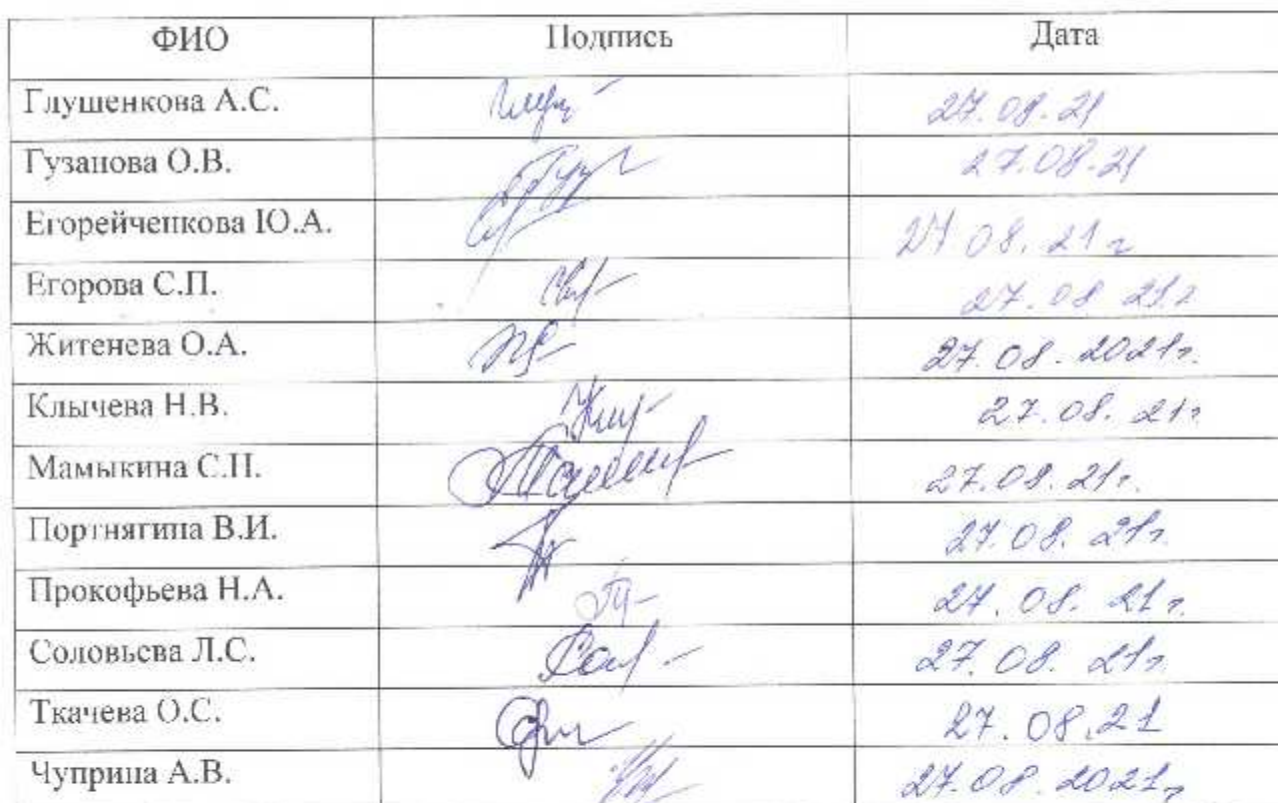 ФИО Подпись Дата
Глушенкова А.С. 27.08.21
Гузанова О.В. 27.08.21
Егорейченкова Ю.А. 27 08.21 г
Егорова С.П. 27.08 21г
Житенева О.А. 27.08.2021г.
Клычева Н.В. 27.08.21г
Мамыкина С.Н. 27.08.21г.
Портнягина В.И. 27.08.21г.
Прокофьева Н.А. 27.08.21г.
Соловьева Л.С. 27.08.21г
Ткачева О.С. 27.08.21
Чуприна А.В. 27.08.2021г